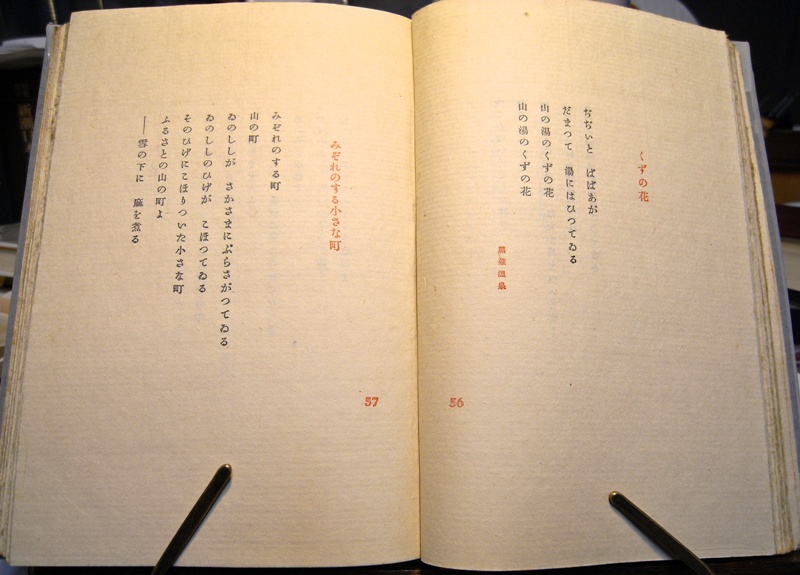 くずの花
ぢぢいと ばばあが
だまつて 湯にはひつてゐる
山の湯のくずの花
山の湯のくずの花
黒薙温泉
56
みぞれのする小さな町
みぞれのする町
山の町
ゐのししが さかさまにぶらさがつてゐる
ゐのししのひげが こほつてゐる
そのひげにこほりついた小さな町
ふるさとの山の町よ
――雪の下に 麻を煮る
57